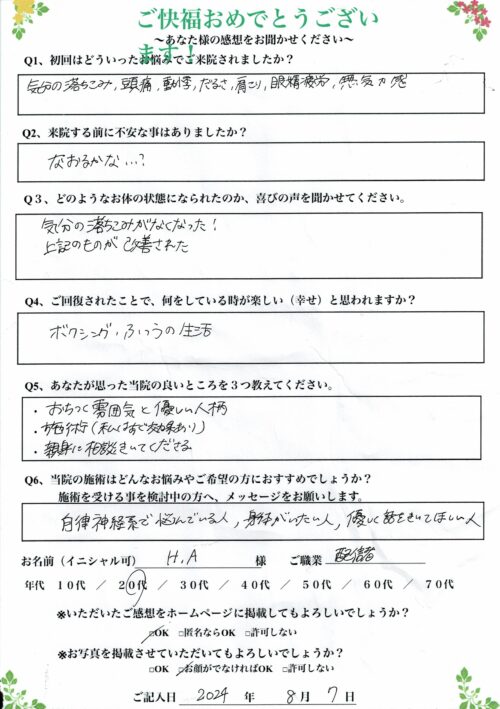 ご快福おめでとうござい
ます！
～あなた様の感想をお聞かせください～
Q1、初回はどういったお悩みでご来院されましたか？
気分の落ちこみ, 頭痛, 動悸, だるさ, 肩こり, 眼精疲労, 無気力感
Q2、来院する前に不安な事はありましたか？
なおるかな…?
Q３、どのようなお体の状態になられたのか、喜びの声を聞かせてください。
気分の落ちこみがなくなった！
上記のものが改善された
Q4、ご回復されたことで、何をしている時が楽しい（幸せ）と思われますか？
ボクシング、ふつうの生活
Q5、あなたが思った当院の良いところを３つ教えてください。
・おちつく雰囲気と優しい人柄
・施術(私はすぐ効果あり)
・親身に相談きいてくださる
Q6、当院の施術はどんなお悩みやご希望の方におすすめでしょうか？
施術を受ける事を検討中の方へ、メッセージをお願いします。
自律神経系で悩んでいる人, 身体がいたい人, 優しく話をきいてほしい人
お名前（イニシャル可） H.A 様 ご職業 配信者
年代 １０代 ／ ２０代 ／ ３０代 ／ ４０代 ／ ５０代 ／ ６０代 ／ ７０代
※いただいたご感想をホームページに掲載してもよろしいでしょうか？
□OK □匿名ならOK □許可しない
※お写真を掲載させていただいてもよろしいでしょうか？
□OK □お顔がでなければOK □許可しない
ご記入日 2024 年 8 月 7 日